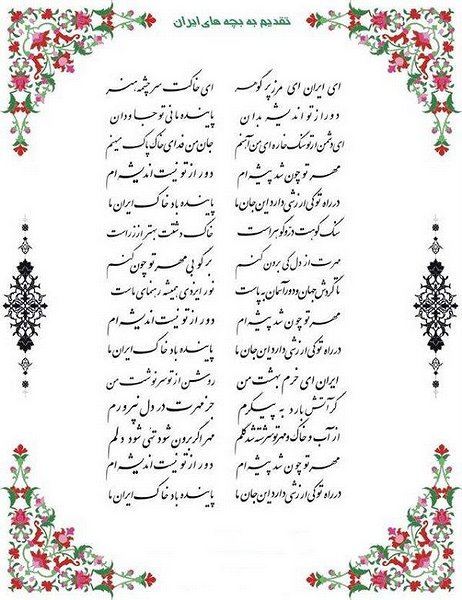 تقدیم به بچه های ایران
ای ایران ای مرز پر گوهر ای خاکت سرچشمه هنر
دور از تو اندیشه بدان پاینده مانی تو جاودان
ای دشمن ار تو سنگ خاره ای من آهنم جان من فدای خاک پاک میهنم
مهر تو چون شد پیشه ام دور از تو نیست اندیشه ام
در راه تو کی ارزشی دارد این جان ما پاینده باد خاک ایران ما
سنگ کوهت در و گوهر است خاک دشتت بهتر از زر است
مهرت از دل کی برون کنم بر گو بی مهر تو چون کنم
تا گردش جهان و دور آسمان به پاست نور ایزدی همیشه رهنمای ماست
مهر تو چون شد پیشه ام دور از تو نیست اندیشه ام
در راه تو کی ارزشی دارد این جان ما پاینده باد خاک ایران ما
ایران ای خرم بهشت من روشن از تو سرنوشت من
گر آتش بارد به پیکرم جز مهرت در دل نپرورم
از آب و خاک و مهر تو سرشته شد گلم مهر اگر برون شود تهی شود دلم
مهر تو چون شد پیشه ام دور از تو نیست اندیشه ام
در راه تو کی ارزشی دارد این جان ما پاینده باد خاک ایران ما